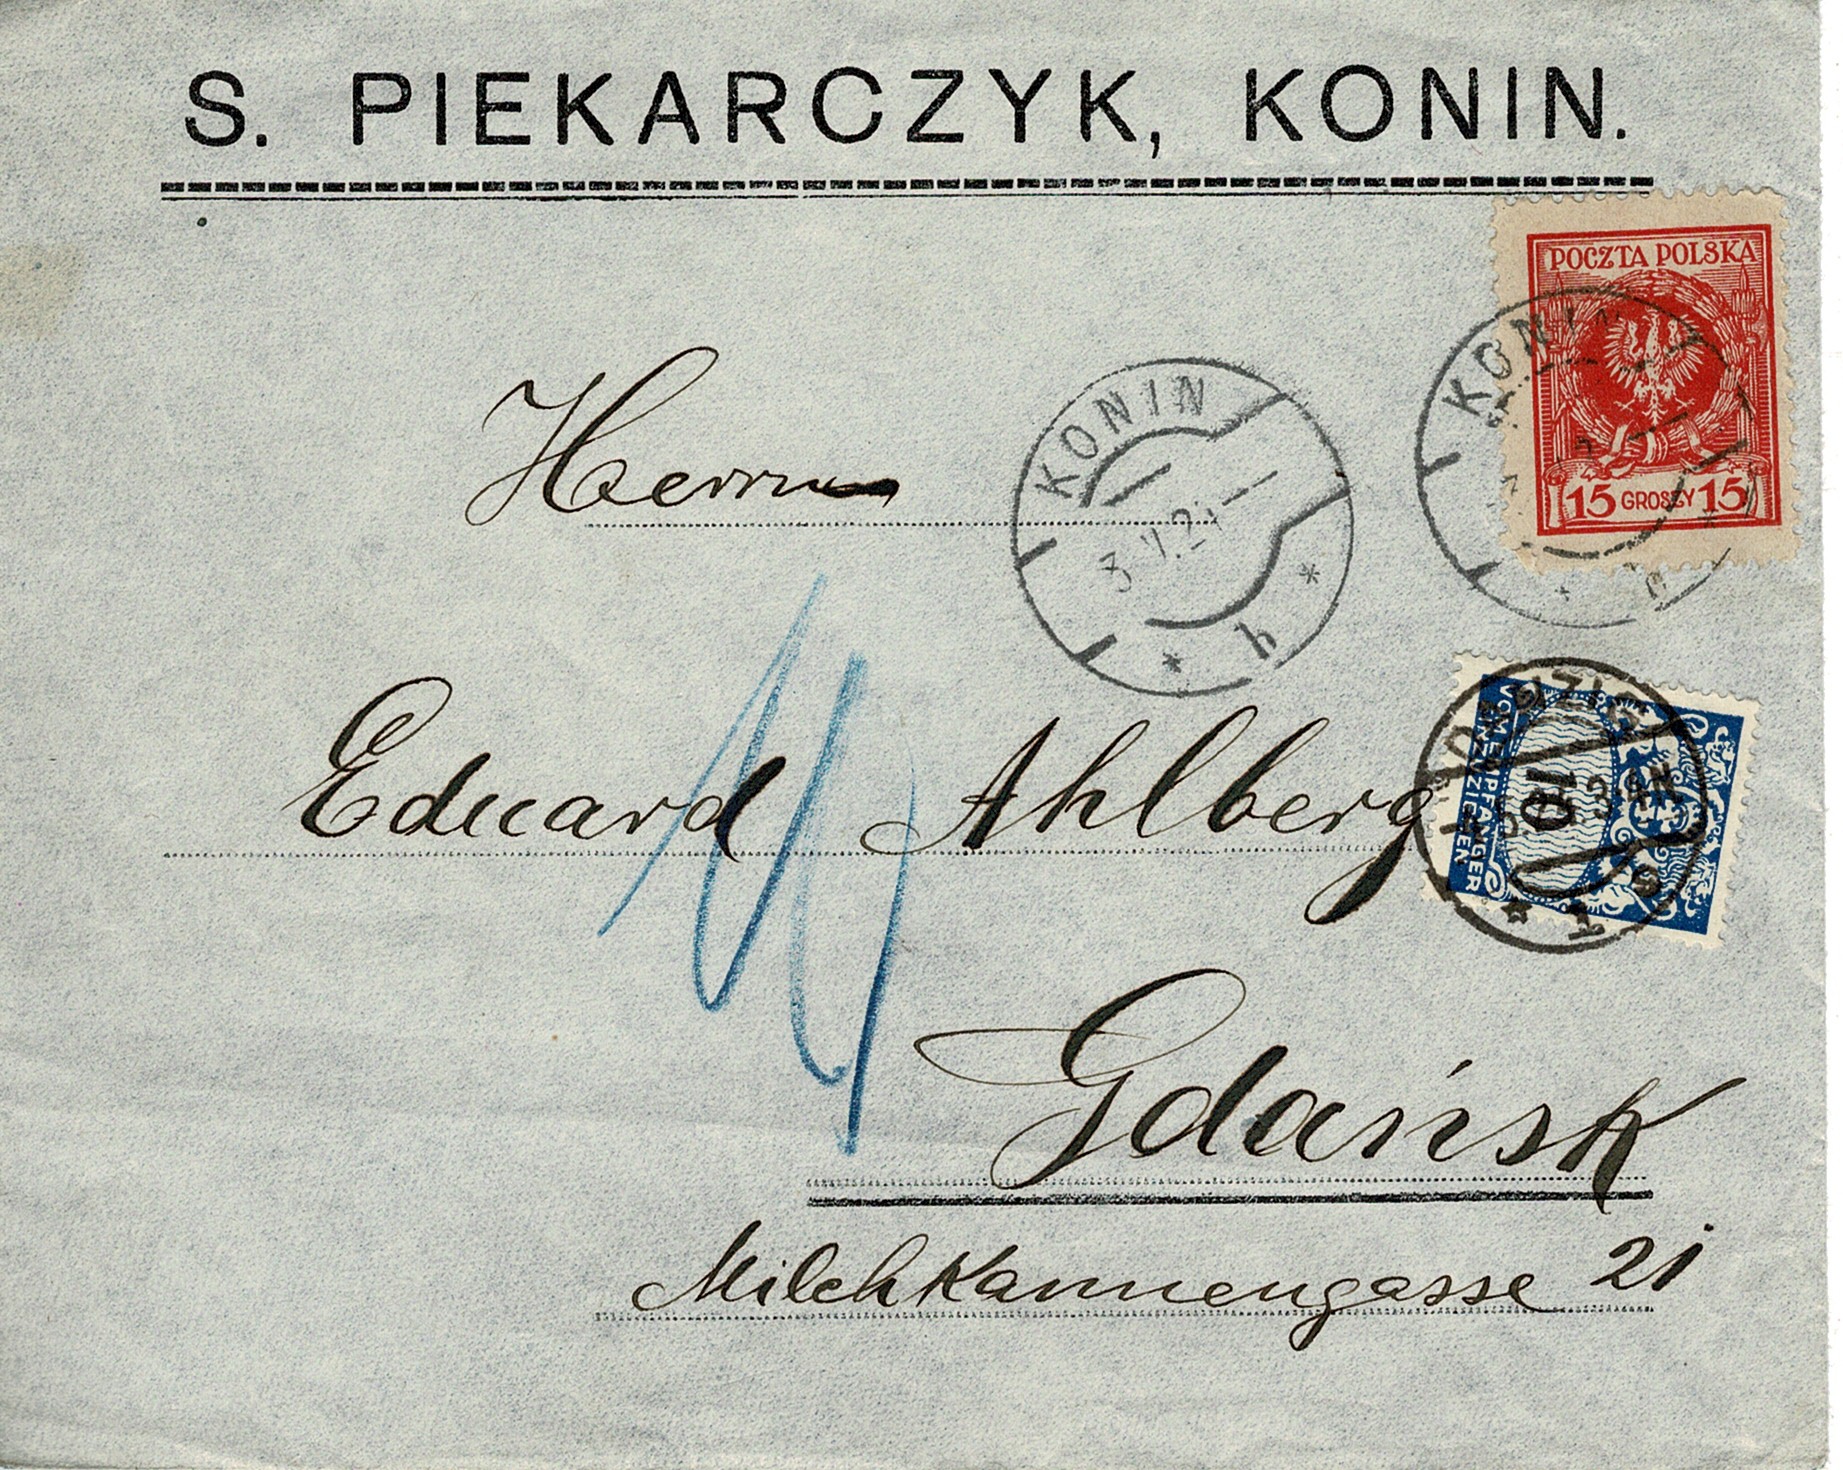 S. PIEKARCZYK, KONIN.
POCZTA POLSKA
15 GROSZY 15
KONIN
KONIN
3.V.24
* h *
Herrn
Eduard Ahlberg
DANZIG
* 1 s
10
VOM EMPFÄNGER
EINZUZIEHEN
Gdańsk
Milchkannengasse 21